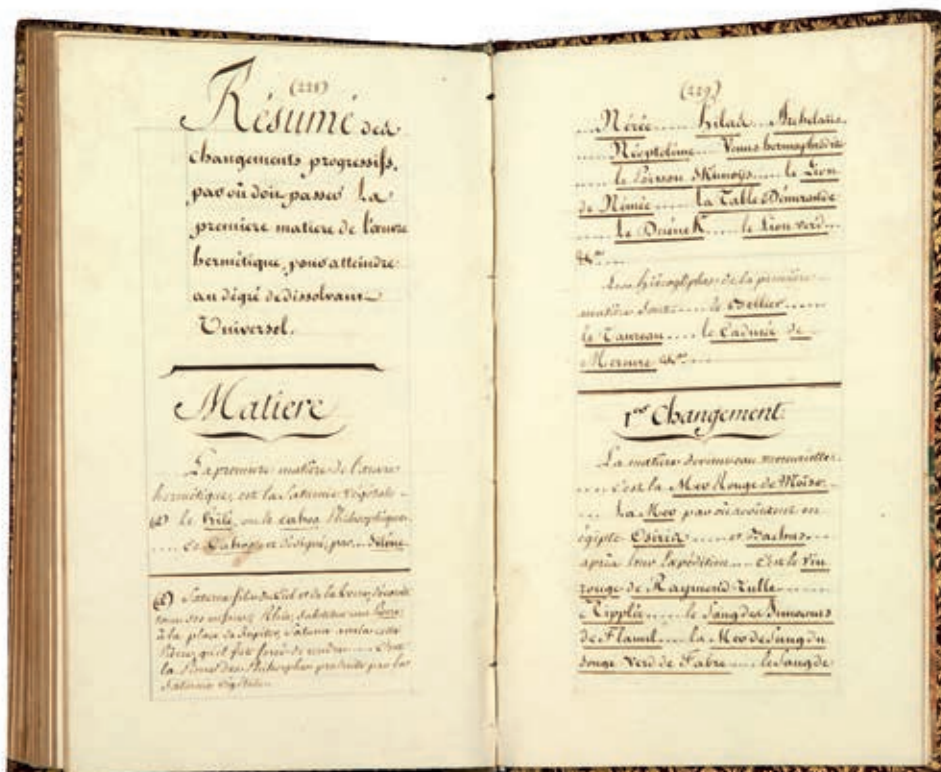 (228)
Résumé des
changements progressifs,
par où doit passer la
premiere matiere de l'œuvre
hermétique, pour atteindre
au dégré de dissolvant
Universel.
Matiere
La premiere matiere de l'œuvre
hermétique, est la Saturnie végétale
le hilé, ou le cahos Philosophique
désigné, par
Saturne fils du Ciel et de la terre, dévorait
tous ses enfans, Rhée, substitua une Pierre
à la place de Jupiter, Saturne avala cette
Pierre, qu'il fut forcé de rendre .... C'est
la Pierre des Philosophes produite par la
Saturnie végétale.
(229)
.... Nérée ..... hilas ... Archelaüs.
..... Néoptolème ... Venus hermaphrodite
..... le Poisson ..... le Lion
de Némée ..... la Table d'Emeraude
..... Le ..... le Lion verd ...
Les hiéroglyphes de la premiere
matiere sont ..... le Bellier .....
le Taureau ..... le Caducée de
Mercure
1er Changement
La matiere devenue eau mercurielle
.... c'est la Mer Rouge de Moïse ..
.... La Mer par où en
égipte Osiris ..... et Bachus ....
après leur Expédition .... C'est le Vin
rouge de Raymond Lulle .......
Ripplée ..... le Sang des Innocens
de Flamel .... la Mer de Sang du
songe Verd de Fabre .... le Sang de